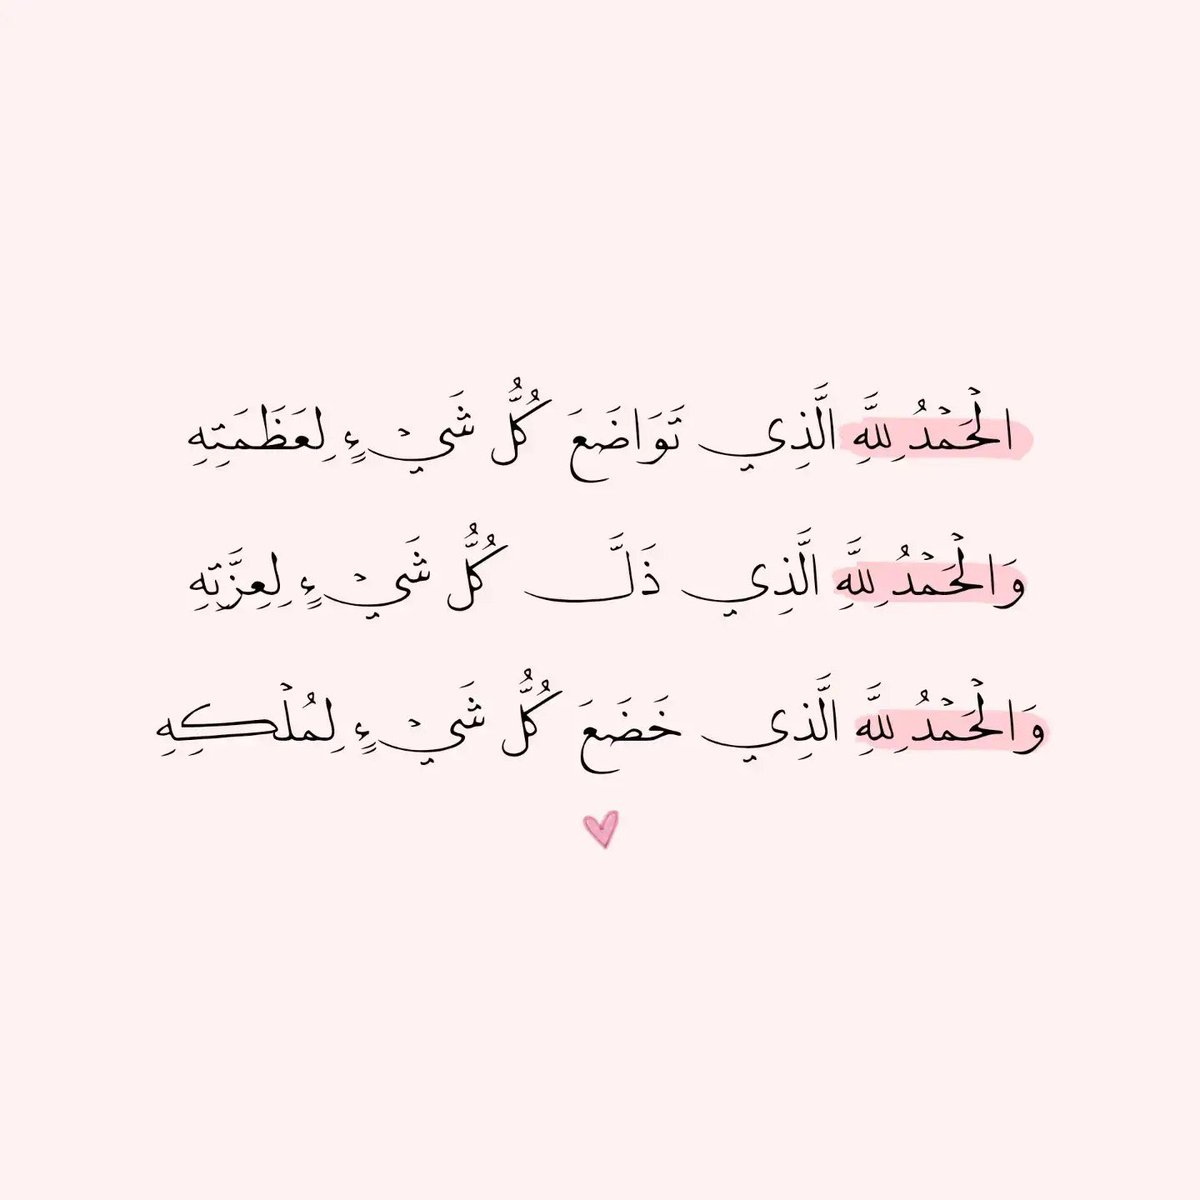 الْحَمْدُ لِلَّهِ الَّذِي تَوَاضَعَ كُلُّ شَيْءٍ لِعَظَمَتِهِ
وَالْحَمْدُ لِلَّهِ الَّذِي ذَلَّ كُلُّ شَيْءٍ لِعِزَّتِهِ
وَالْحَمْدُ لِلَّهِ الَّذِي خَضَعَ كُلُّ شَيْءٍ لِمُلْكِهِ